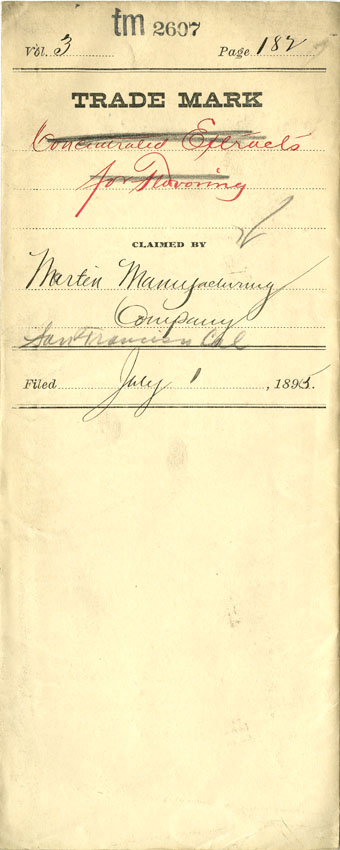 tm 2607
Vol. 3 Page 182
TRADE MARK
Concentrated Extracts
for Flavoring
CLAIMED BY
Martin Manufacturing
Company
San Francisco Cal
Filed July 1, 1895.